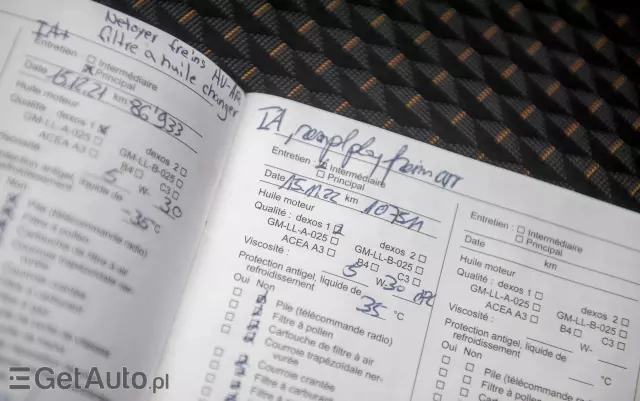 Netoyer freins AV-AR
IA+ filtre à huile changer
Entretien : Intermédiaire
Principal
Date 15.12.21 km 86'933
Huile moteur
Qualité : dexos 1 dexos 2
GM-LL-A-025 GM-LL-B-025
ACEA A3 B4 C3
Viscosité 5 W- 30
Protection antigel, liquide de
-35 °C
Oui Non
Pile (télécommande radio)
Filtre à pollen
Cartouche de filtre à air
Courroie trapézoïdale nervurée
Courroie crantée
Filtre à carburant
IA, frein arr
Entretien : Intermédiaire
Principal
Date 15.11.22 km
Huile moteur
Qualité : dexos 1 dexos 2
GM-LL-A-025 GM-LL-B-025
ACEA A3 B4 C3
Viscosité : 5 W-30
Protection antigel, liquide de
refroidissement 35 °C
Oui Non
Pile (télécommande radio)
Filtre à pollen
Cartouche de filtre à air
Courroie trapézoïdale ner-
vurée
Courroie crantée
Filtre à carburant
Entretien : Intermédiaire
Principal
Date km
Huile moteur
Qualité : dexos 1 dexos 2
GM-LL-A-025 GM-LL-B-025
ACEA A3 B4 C3
Viscosité : W-
Protection antigel, liquide de
refroidissement °C
Oui Non
Pile (télécommande radio)
Filtre à pollen
GetAuto.pl